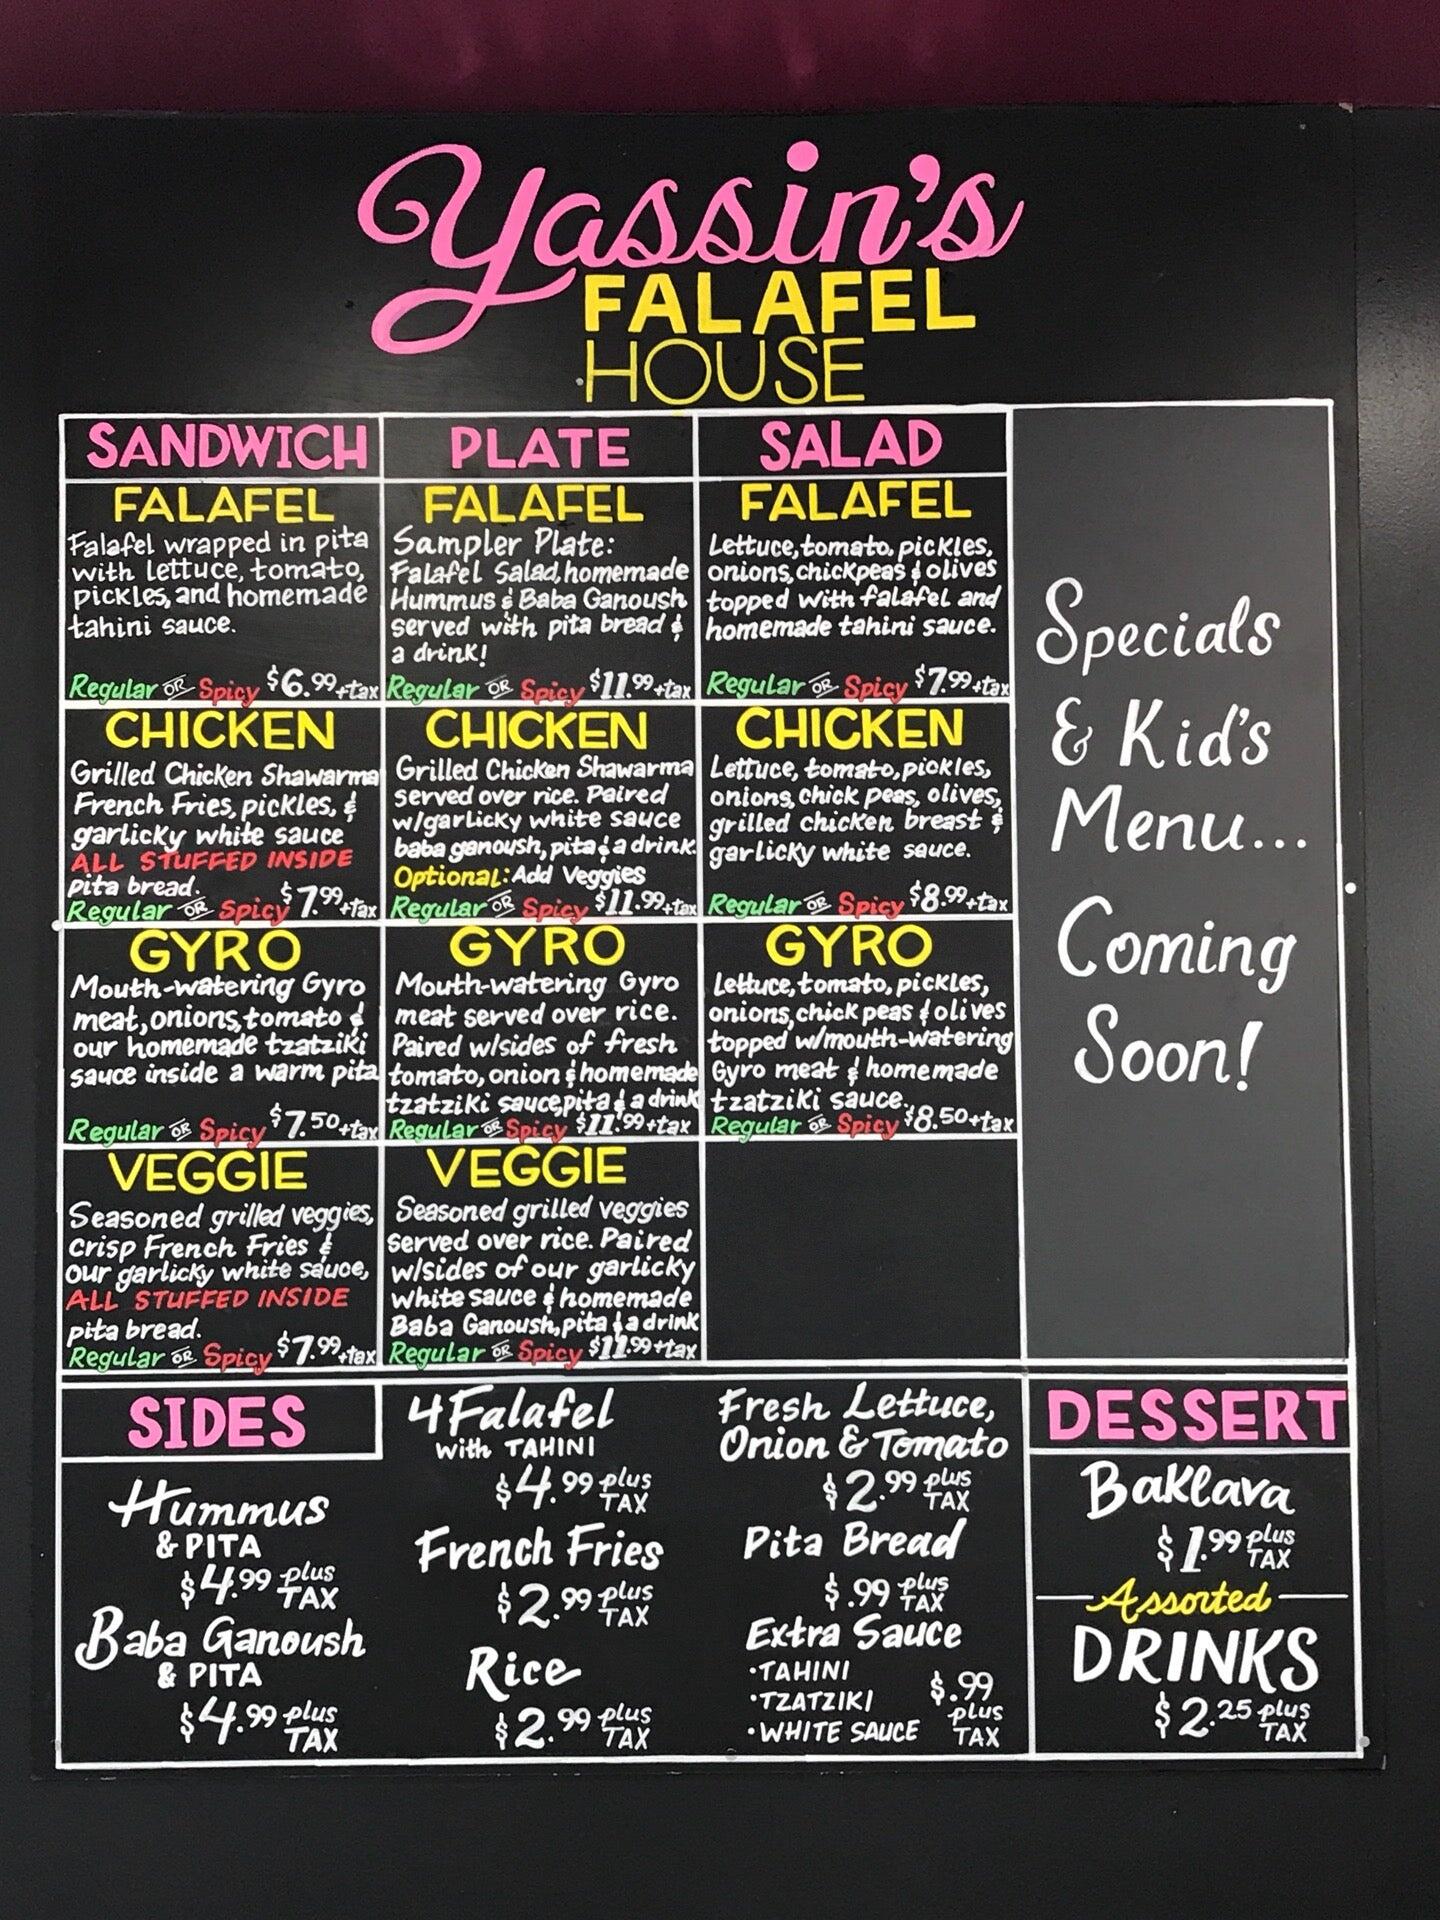 Yassin's
FALAFEL
HOUSE
SANDWICH
FALAFEL
Falafel wrapped in pita
with lettuce, tomato,
pickles, and homemade
tahini sauce.
Regular OR Spicy $6.99+tax
CHICKEN
Grilled Chicken Shawarma
French Fries, pickles, &
garlicky white sauce
ALL STUFFED INSIDE
pita bread.
Regular OR Spicy $7.99+tax
GYRO
Mouth-watering Gyro
meat, onions, tomato &
our homemade tzatziki
sauce inside a warm pita
Regular OR Spicy $7.50+tax
VEGGIE
Seasoned grilled veggies,
crisp French Fries &
our garlicky white sauce,
ALL STUFFED INSIDE
pita bread.
Regular OR Spicy $7.99+tax
PLATE
FALAFEL
Sampler Plate:
Falafel Salad, homemade
Hummus & Baba Ganoush
served with pita bread &
a drink!
Regular OR Spicy $11.99+tax
CHICKEN
Grilled Chicken Shawarma
served over rice. Paired
w/garlicky white sauce
baba ganoush, pita & a drink.
Optional: Add Veggies
Regular OR Spicy $11.99+tax
GYRO
Mouth-watering Gyro
meat served over rice.
Paired w/sides of fresh
tomato, onion & homemade
tzatziki sauce, pita & a drink
Regular OR Spicy $11.99+tax
VEGGIE
Seasoned grilled veggies
served over rice. Paired
w/sides of our garlicky
white sauce & homemade
Baba Ganoush, pita & a drink
Regular OR Spicy $11.99+tax
SALAD
FALAFEL
Lettuce, tomato, pickles,
onions, chickpeas & olives
topped with falafel and
homemade tahini sauce.
Regular OR Spicy $7.99+tax
CHICKEN
Lettuce, tomato, pickles,
onions, chick peas, olives,
grilled chicken breast &
garlicky white sauce.
Regular OR Spicy $8.99+tax
GYRO
Lettuce, tomato, pickles,
onions, chick peas & olives
topped w/mouth-watering
Gyro meat & homemade
tzatziki sauce.
Regular OR Spicy $8.50+tax
Specials
& Kid's
Menu...
Coming
Soon!
SIDES
Hummus
& PITA
$4.99 plus TAX
Baba Ganoush
& PITA
$4.99 plus TAX
4 Falafel
with TAHINI
$4.99 plus TAX
French Fries
$2.99 plus TAX
Rice
$2.99 plus TAX
Fresh Lettuce,
Onion & Tomato
$2.99 plus TAX
Pita Bread
$.99 plus TAX
Extra Sauce
•TAHINI
•TZATZIKI
•WHITE SAUCE
$.99
plus
TAX
DESSERT
Baklava
$1.99 plus TAX
Assorted
DRINKS
$2.25 plus TAX